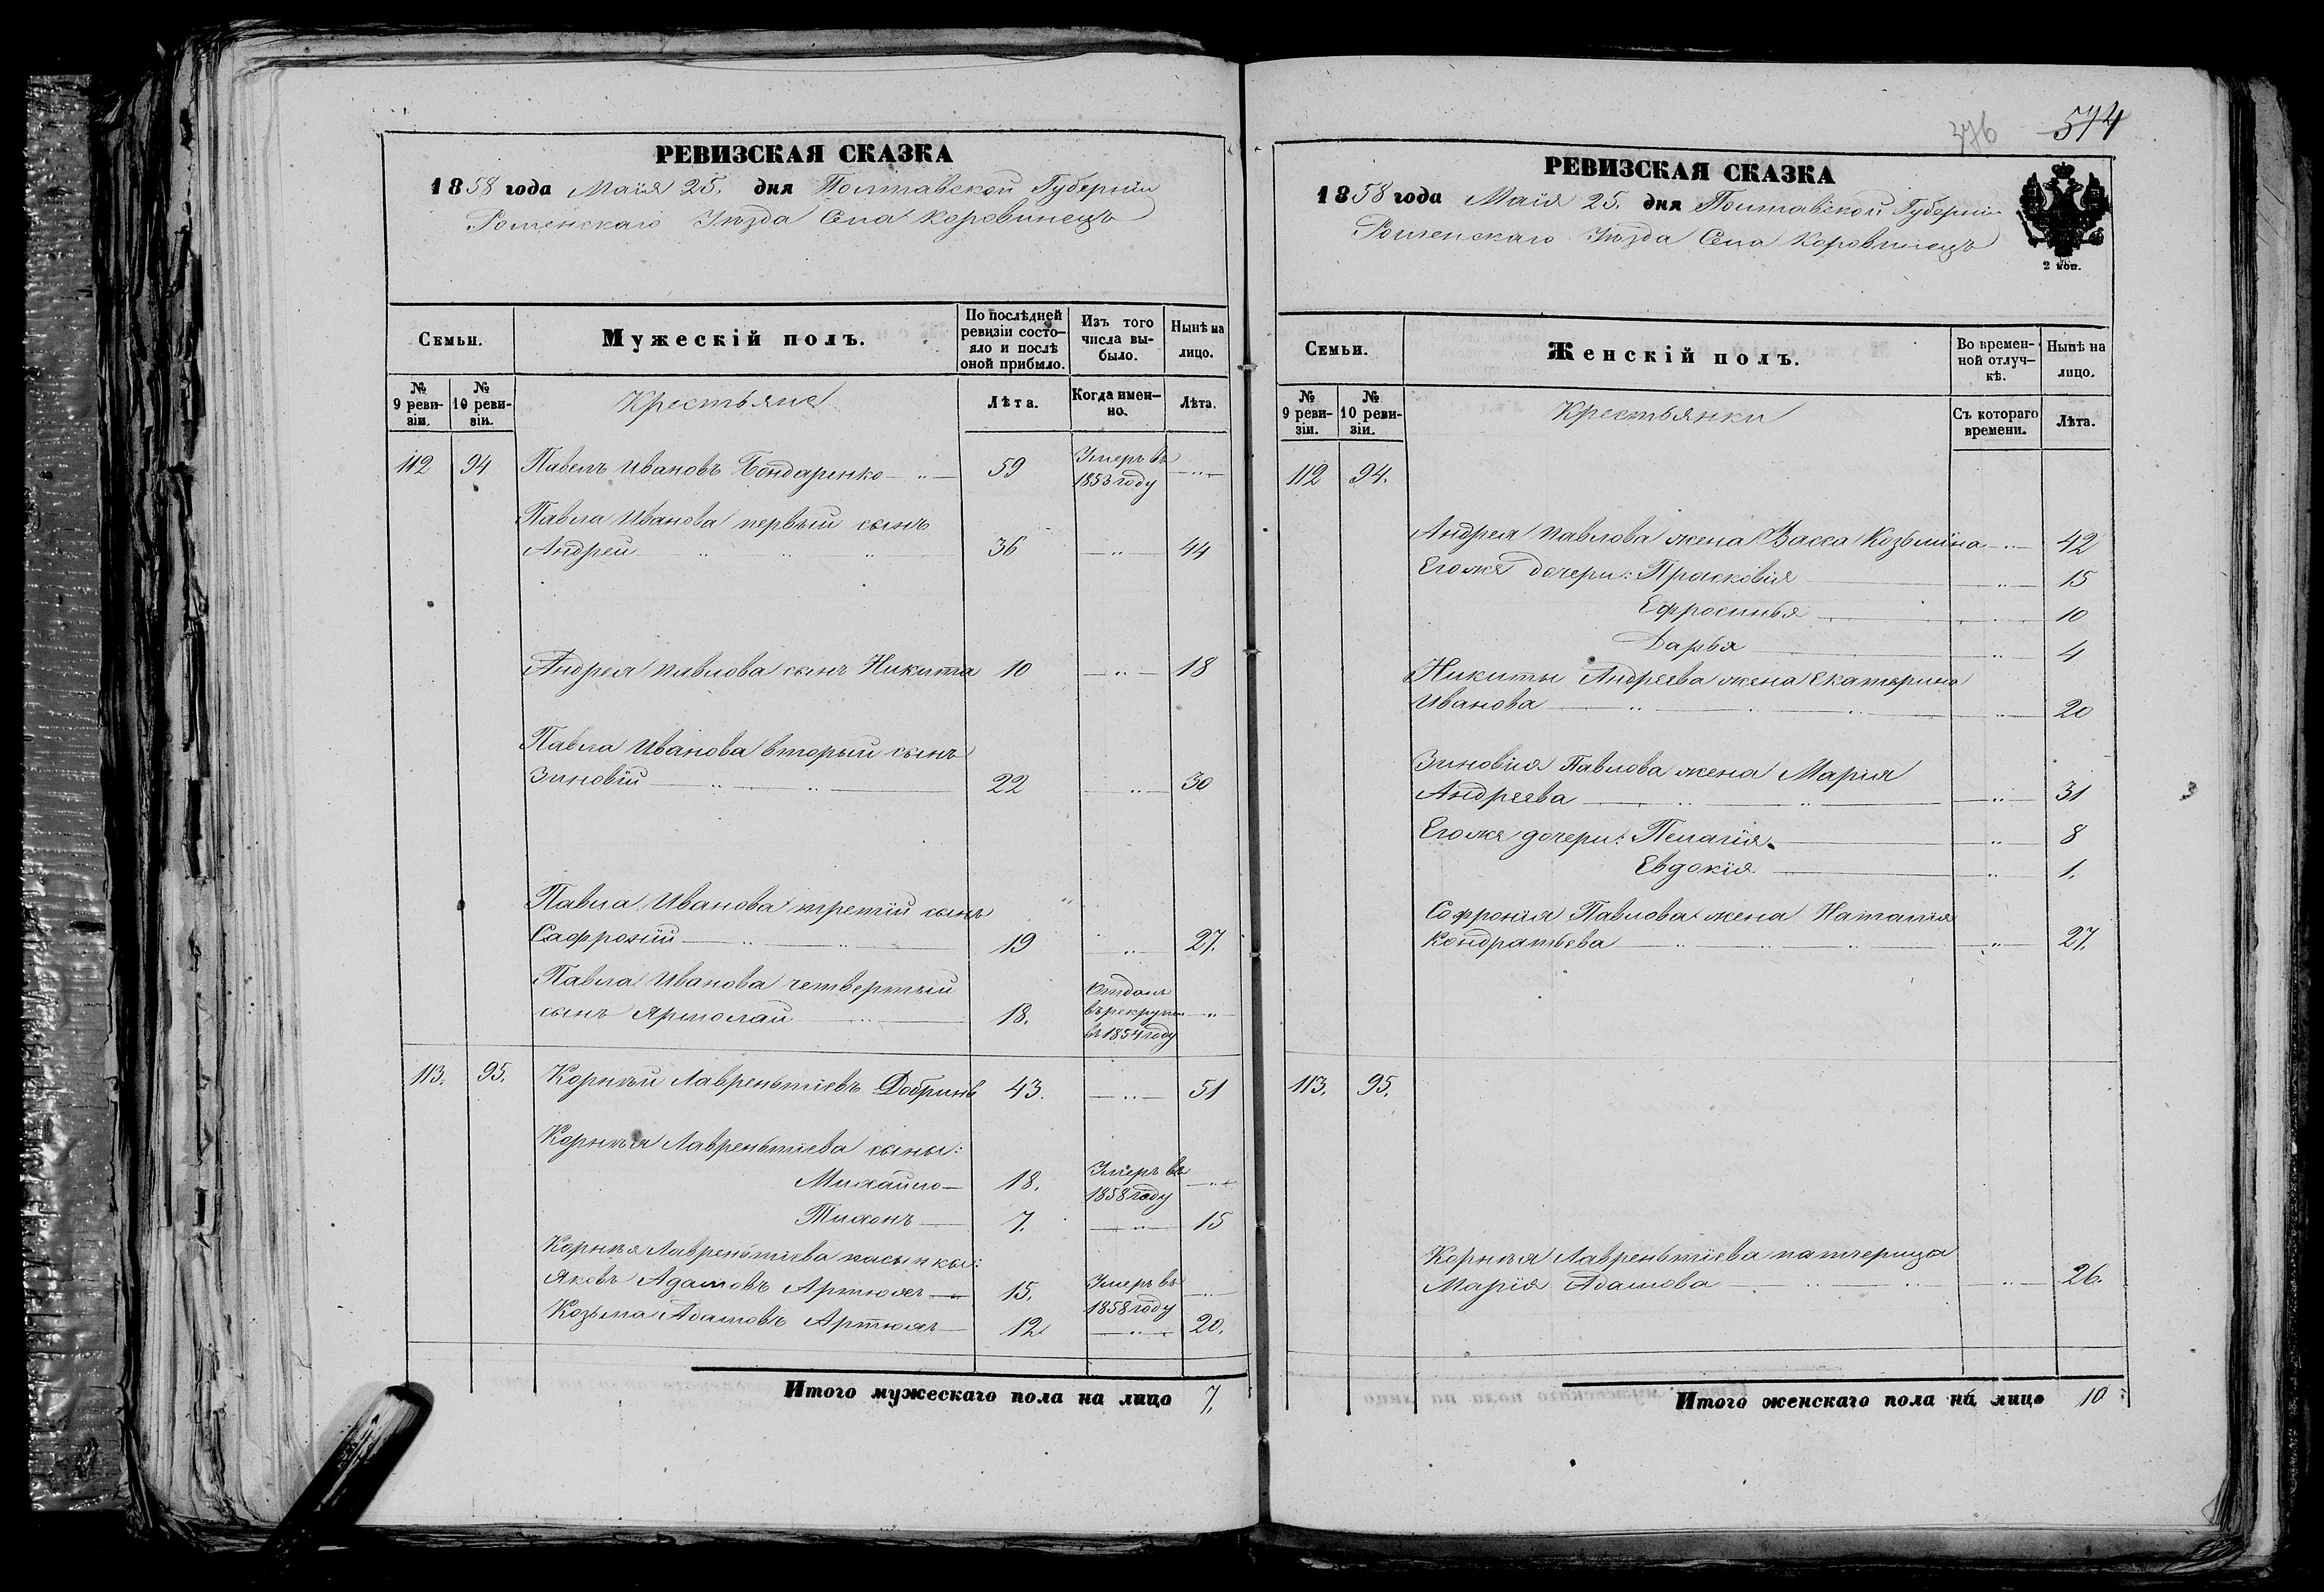 РЕВИЗСКАЯ СКАЗКА
1858 года Маія 25. дня Полтавской Губерніи
Роменскаго Уѣзда Села Коровинецъ
Семьи.
Мужескій полъ.
По послѣдней ревизіи состояло и послѣ оной прибыло.
Изъ того числа выбыло.
Нынѣ на лицо.
№ 9 ревизіи.
№ 10 ревизіи.
Крестьяне
Лѣта.
Когда именно.
Лѣта.
112 94 Павелъ Ивановъ Бондаренко 59 Умеръ въ 1853 году
Павла Иванова первый сынъ
Андрей 36 44
Андрея Павлова сынъ Никита 10 18
Павла Иванова вторый сынъ
Зиновій 22 30
Павла Иванова третій сынъ
Сафроній 19 27.
Павла Иванова четвертый
сынъ Ярмолай 18. Отданъ въ рекруты въ 1854 году
113. 95. Корнѣй Лаврентьіевъ 43. 51
Корнѣя Лаврентьіева сыны:
Михайло 18. Умеръ въ 1858 году
Тихонъ 7. 15
Корнѣя Лаврентьіева пасынки:
Яковъ Адамовъ Артюхъ 15. Умеръ въ 1858 году
Козьма Адамовъ Артюхъ 12 20.
Итого мужескаго пола на лицо 7.
376 574
РЕВИЗСКАЯ СКАЗКА
1858 года Маія 25. дня Полтавской Губерніи
Роменскаго Уѣзда Села Коровинецъ
2 коп.
Семьи.
Женскій полъ.
Во временной отлучкѣ.
Нынѣ на лицо.
№ 9 ревизіи.
№ 10 ревизіи.
Крестьянки
Съ котораго времени.
Лѣта.
112 94.
Андрея Павлова жена Васса Козьмина 42
Егоже дочери: Прасковія 15
Ефросинья 10
Дарья 4
Никиты Андреева жена Екатерина
Иванова 20
Зиновія Павлова жена Марія
Андреева 31
Егоже дочери: Пелагія 8
Евдокія 1.
Софронія Павлова жена Наталія
Кондратьева 27.
113. 95.
Корнѣя Лаврентьіева падчерица
Марія Адамова 26.
Итого женскаго пола на лицо 10